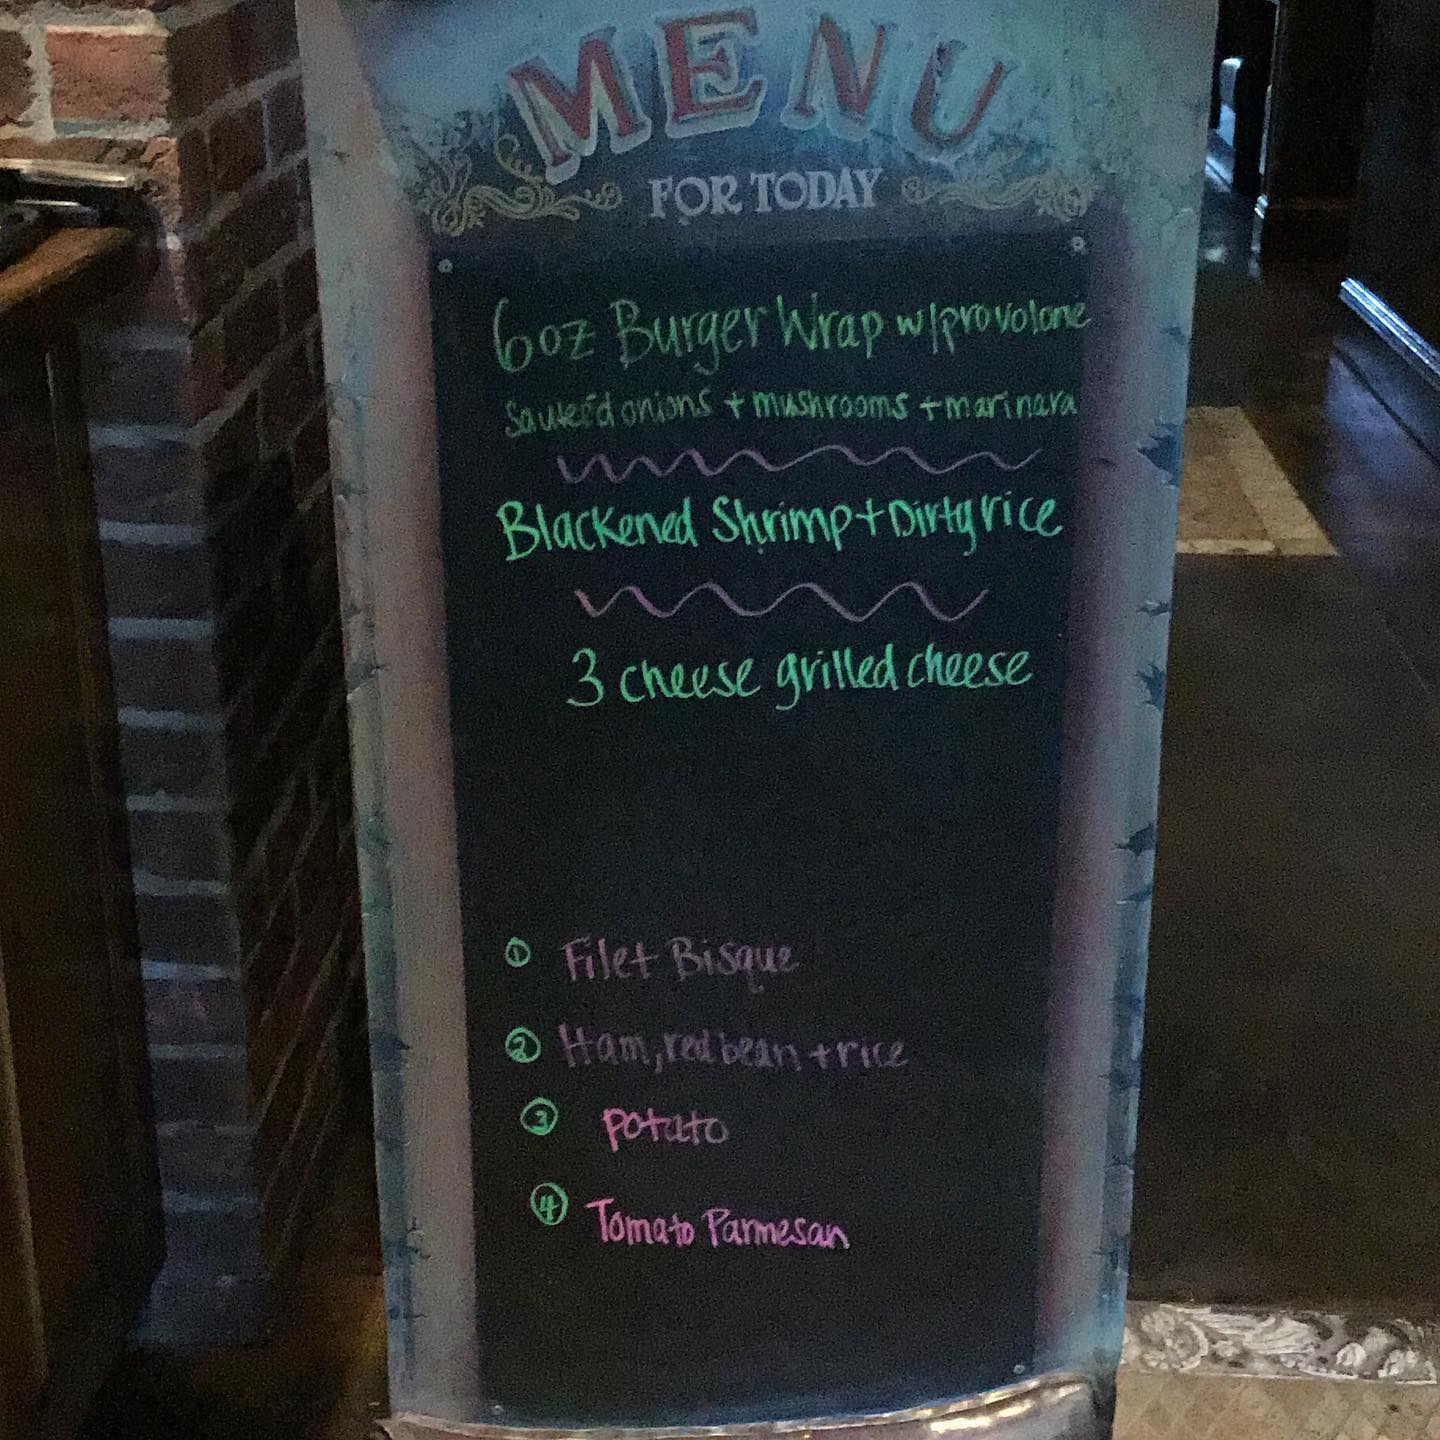 MENU
FOR TODAY
6oz Burger Wrap w/provolone
sauteéd onions + mushrooms + marinara
Blackened Shrimp + Dirty rice
3 cheese grilled cheese
① Filet Bisque
② Ham, red bean + rice
③ potato
④ Tomato Parmesan